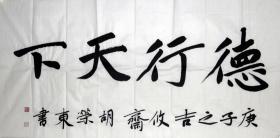 德行天下
庚子之吉攸齋胡榮東書